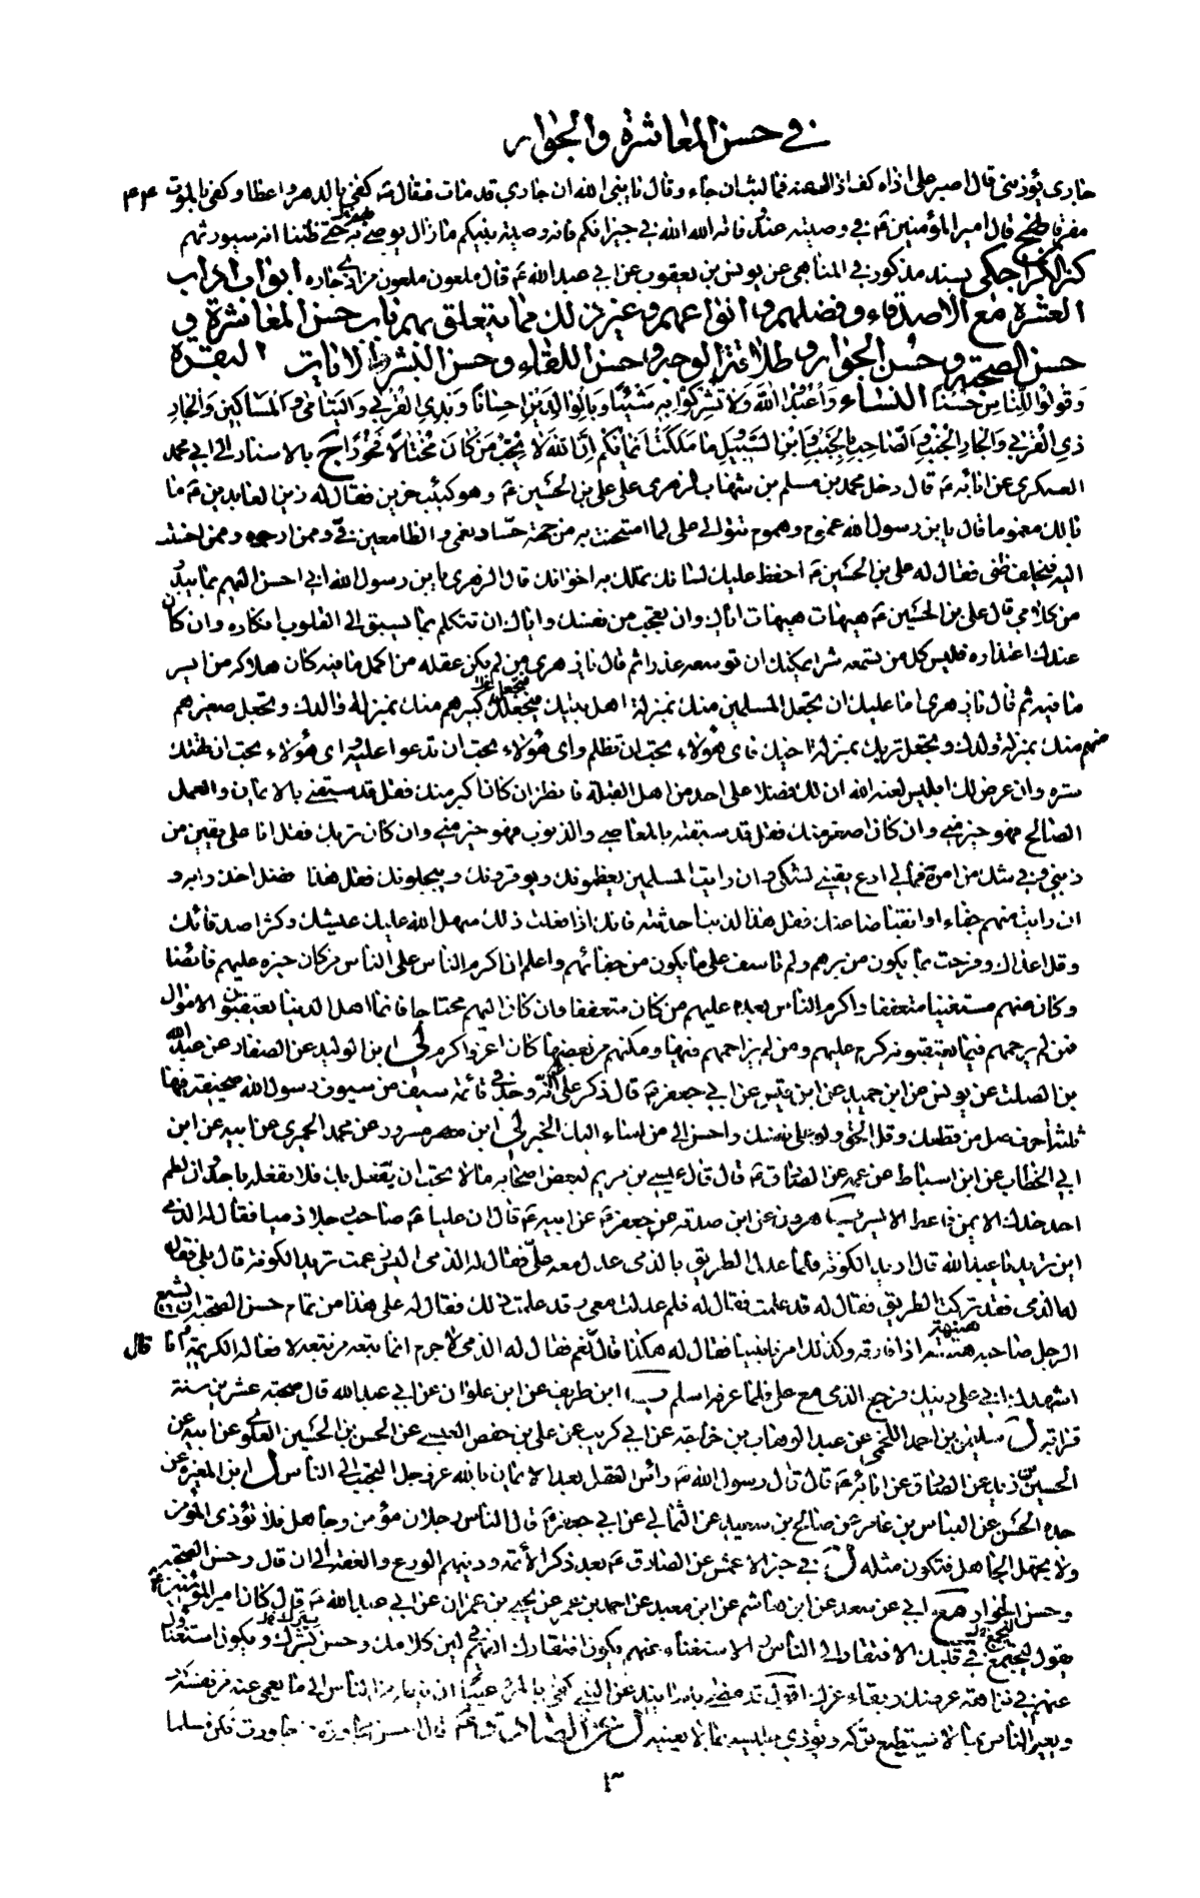 في حسن المعاشرة والجوار
جاري يؤذيني قال اصبر على اذاه كف اذاك عنه فما لبث ان جاء وقال يا نبي الله ان جاري قد مات فقال ص كفى بالدهر واعظا وكفى بالموت ٤٣
مفرقا نهج قال امير المؤمنين ع في وصيته عند وفاته الله الله في جيرانكم فانه وصية نبيكم ما زال يوصي بهم حتى ظننا انه سيورثهم
كنز الكراجكي بسند مذكور في المناهي عن يونس بن يعقوب عن ابي عبد الله ع قال ملعون ملعون من اذى جاره ابواب اداب
العشرة مع الاصدقاء وفضلهم وانواعهم وغير ذلك مما يتعلق بهم باب حسن المعاشرة و
حسن الصحبة وحسن الجوار وطلاقة الوجه وحسن اللقاء وحسن البشر الايات البقرة
وَقُولُوا لِلنَّاسِ حُسْنًا النساء وَاعْبُدُوا اللَّهَ وَلَا تُشْرِكُوا بِهِ شَيْئًا وَبِالْوَالِدَيْنِ إِحْسَانًا وَبِذِي الْقُرْبَى وَالْيَتَامَى وَالْمَسَاكِينِ وَالْجَارِ
ذِي الْقُرْبَى وَالْجَارِ الْجُنُبِ وَالصَّاحِبِ بِالْجَنْبِ وَابْنِ السَّبِيلِ وَمَا مَلَكَتْ أَيْمَانُكُمْ إِنَّ اللَّهَ لَا يُحِبُّ مَنْ كَانَ مُخْتَالًا فَخُورًا ج بالاسناد الى ابي محمد
العسكري عن ابائه ع قال دخل محمد بن مسلم بن شهاب الزهري على علي بن الحسين ع وهو كئيب حزين فقال له زين العابدين ع ما
بالك مغموما قال يا بن رسول الله غموم وهموم تتوالى علي لما امتحنت به من جهة حساد نعمي والطامعين في وممن ارجوه وممن احسنت
اليه فيخلف ظني فقال له علي بن الحسين ع احفظ عليك لسانك تملك به اخوانك قال الزهري يا بن رسول الله اني احسن اليهم بما يبدر
من كلامي قال علي بن الحسين ع هيهات هيهات اياك وان تعجب من نفسك واياك ان تتكلم بما يسبق الى القلوب انكاره وان كان
عندك اعتذاره فليس كل من تسمعه شرا يمكنك ان توسعه عذرا ثم قال يا زهري من لم يكن عقله من اكمل ما فيه كان هلاكه من ايسر
ما فيه ثم قال يا زهري اما عليك ان تجعل المسلمين منك بمنزلة اهل بيتك فتجعل كبيرهم منك بمنزلة والدك وتجعل صغيرهم
منهم منك بمنزلة ولدك وتجعل تربك بمنزلة اخيك فاي هؤلاء تحب ان تظلم واي هؤلاء تحب ان تدعو عليه واي هؤلاء تحب ان تهتك
ستره وان عرض لك ابليس لعنه الله ان لك فضلا على احد من اهل القبلة فانظر ان كان اكبر منك فقل قد سبقني بالايمان والعمل
الصالح فهو خير مني وان كان اصغر منك فقل قد سبقته بالمعاصي والذنوب فهو خير مني وان كان تربك فقل انا على يقين من
ذنبي وفي شك من امره فما لي ادع يقيني لشكي وان رايت المسلمين يعظمونك ويوقرونك ويبجلونك فقل هذا فضل اخذوا به و
ان رايت منهم جفاء او انقباضا عنك فقل هذا لذنب احدثته فانك اذا فعلت ذلك سهل الله عليك عيشك وكثر اصدقائك
وقل اعداؤك وفرحت بما يكون من برهم ولم تاسف على ما يكون من جفائهم واعلم ان اكرم الناس على الناس من كان خيره عليهم فائضا
وكان عنهم مستغنيا متعففا واكرم الناس بعده عليهم من كان متعففا وان كان اليهم محتاجا فانما اهل الدنيا يعتقبون الاموال
فمن لم يزحمهم فيما يعتقبونه كرم عليهم ومن لم يزاحمهم فيها ومكنهم من بعضها كان اعز واكرم لي ابن الوليد عن الصفار عن عبد الله
بن الصلت عن يونس عن ابن حميد عن ابن قيس عن ابي جعفر ع قال ذكر علي انه وجد في قائمة سيف من سيوف رسول الله صحيفة فيها
ثلثة احرف صل من قطعك وقل الحق ولو على نفسك واحسن الى من اساء اليك الخبر لي ابن مسرور عن محمد الحميري عن ابيه عن ابن
ابي الخطاب عن ابن اسباط عن عمه عن الصادق ع قال قال عيسى بن مريم لبعض اصحابه ما لا تحب ان يفعل بك فلا تفعله باحد وان لطم
احد خدك الايمن فاعط الايسر ب هرون عن ابن صدقه عن جعفر ع عن ابيه ع قال ان عليا ع صاحب رجلا ذميا فقال له الذمي
اين تريد يا عبد الله قال اريد الكوفة فلما عدل الطريق بالذمي عدل معه علي فقال له الذمي اليس زعمت تريد الكوفة قال بلى فقال
له الذمي فقد تركت الطريق فقال له قد علمت فقال له فلم عدلت معي وقد علمت ذلك فقال له علي هذا من تمام حسن الصحبة ان يشيع
الرجل صاحبه هنيهة اذا فارقه وكذلك امرنا نبينا فقال له هكذا قال نعم فقال له الذمي لا جرم انما تبعه من تبعه لافعاله الكريمة وانا قال
اشهدك اني على دينك فرجع الذمي مع علي فلما عرفه اسلم ب ابن طريف عن ابن علوان عن ابي عبد الله قال صحبة عشرين سنة
قرابة ل سليمن بن احمد اللخمي عن عبد الوهاب بن خراجه عن ابي كريب عن علي بن حفص العبسي عن الحسن بن الحسين العلوي عن ابيه عن
الحسين بن زيد عن الصادق عن ابائه ع قال قال رسول الله ص راس العقل بعد الايمان بالله عز وجل التحبب الى الناس ل ابن المغيرة عن
جده الحسن عن العباس بن عامر عن صالح بن سعيد عن الثمالي عن ابي جعفر ع قال الناس رجلان مؤمن وجاهل فلا تؤذي المؤمن
ولا تجهل الجاهل فتكون مثله ل في خبر الاعمش عن الصادق ع بعد ذكر الائمة ودينهم الورع والعفة الى ان قال وحسن الصحبة
وحسن الجوار مع ابي عن سعد عن ابن هاشم عن ابن معبد عن احمد بن عمر عن يحيى بن عمران عن ابي عبد الله ع قال كان امير المؤمنين ع
يقول ليجتمع في قلبك الافتقار الى الناس والاستغناء عنهم يكون افتقارك اليهم في لين كلامك وحسن بشرك ويكون استغناؤك
عنهم في نزاهة عرضك وبقاء عزك اقول قد مضى باسانيد عن النبي كفى بالمرء عيبا ان ينظر من الناس الى ما يعمى عنه من نفسه
ويعير الناس بما لا يستطيع تركه ويؤذي جليسه بما لا يعنيه ل عن الصادق ع قال احسن مجاورة من جاورت تكن مسلما
٣